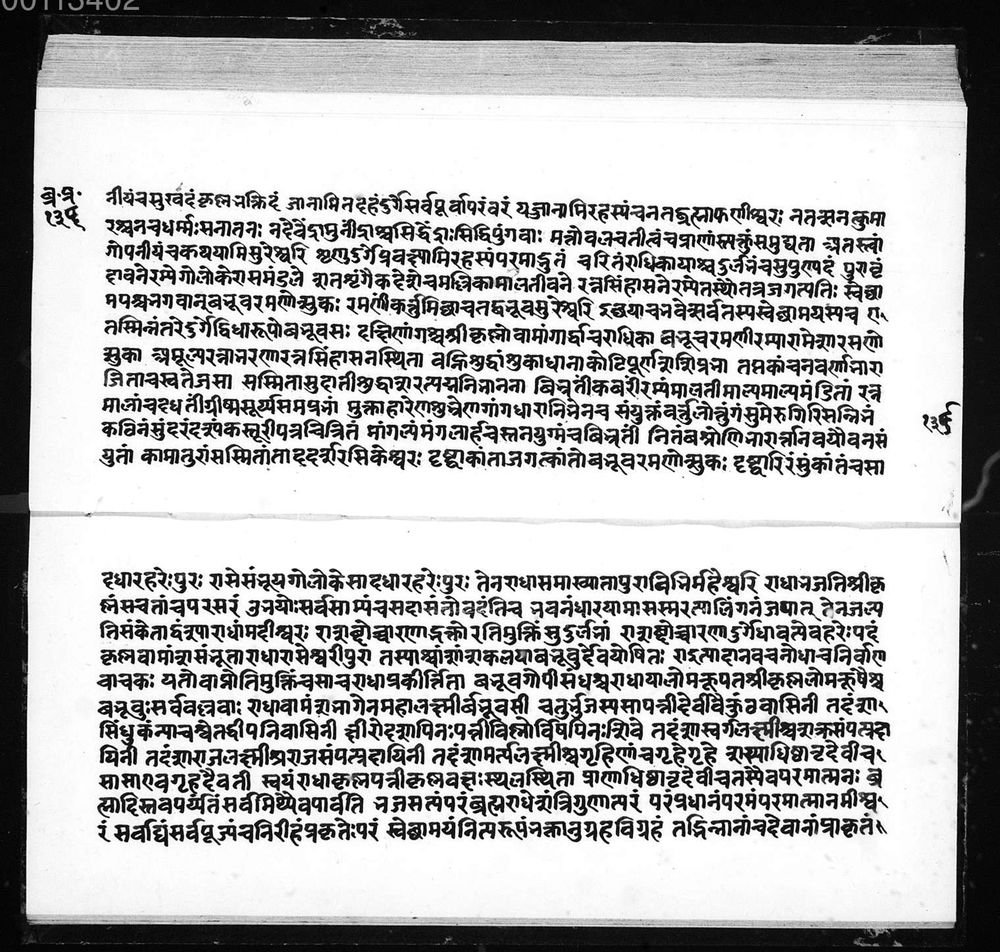 00113402
ब्र. प्र.
१३५
नीयं च सुखदं कृष्णभक्तिदं जानामि नदहं दुर्गे सर्वपूर्वापरं वरं यज्जानामि रहस्यं च न तद्ब्रह्मा फणीश्वरः न तत्सनत्कुमा
रश्च न च धर्मः सनातनः न देवेंद्रा मुनींद्राश्च सिद्धेंद्राः सिद्धिपुंगवाः मत्तो वलवती त्वं च प्राणांस्त्यक्तुं समुद्यता अतस्त्वां
गोपनीयं च कथयामि सुरेश्वरि शृणु दुर्गे प्रवक्ष्यामि रहस्यं परमाद्भुतं चरितं राधिकायाश्च दुर्लभं च सुपुण्यदं पुरा वृं
दावने रम्ये गोलोके रासमंडले शतशृंगैकदेशे च मल्लिकामालतीवने रत्नसिंहासने रम्ये तस्थौ तत्र जगत्पतिः स्वेच्छा
मयश्च भगवान् बभूव रमणोत्सुकः रमणं कर्त्तुमिच्छा च तद्बभूव सुरेश्वरि इच्छया च भवेत्सर्वं तस्य स्वेच्छामयस्य च ए
तस्मिन्नंतरे दुर्गे द्विधारूपो बभूव सः दक्षिणांगश्च श्रीकृष्णो वामांगार्द्धा च राधिका बभूव रमणी रम्या रासेशी रमणो
त्सुका अमूल्यरत्नाभरणा रत्नसिंहासनस्थिता वह्निशुद्धांशुकाधाना कोटिपूर्णशशिप्रभा तप्तकांचनवर्णाभा रा
जिता च स्वतेजसा सस्मिता सुदती शुद्धा शरत्पद्मनिभानना बिभ्रती कबरीं रम्यां मालतीमाल्यमाल्यमंडितां रत्न
मालां च दधती ग्रीष्मसूर्य्यसमप्रभां मुक्ताहारेण शुभ्रेण गांगधारानिभेन च संयुक्तं वर्त्तुलोत्तुंगं सुमेरुगिरिसन्निभं
१३५
कठिनं सुंदरं दृश्यं कस्तूरीपत्रचित्रितं मांगल्यं मंगलार्हं च स्तनयुग्मं च बिभ्रती नितंबश्रोणिभारार्त्ता नवयौवनसं
युतां कामातुरां सस्मितां तां ददर्श रसिकेश्वरः दृष्ट्वा कांतां जगत्कांतो बभूव रमणोत्सुकः दृष्ट्वा रिरंसुं कांतं च सा
दधार हरेः पुरः रासे संभूय गोलोके सा दधार हरेः पुरः तेन राधा समाख्याता पुराविद्भिर्महेश्वरि राधा भजति श्रीकृ
ष्णं स च तां च परस्परं उभयोः सर्वसाम्यं च सदा संतो वदंति च भवनं धारयामास स्मरत्यालिंगनं जपात् तेन जल्प
ति संकेताद्दंशपा राधा मदीश्वरः राशब्दोच्चारणाद्भक्तो रति मुक्तिं सुदुर्लभां राशब्दोच्चारणाद्दुर्गे धावत्येव हरेः पदं
कृष्णवामांशसंभूता राधा रासेश्वरी पुरा तस्याश्चांशांशकलया बभूवुर्देवयोषितः रा इत्यादानवचनो धा च निर्वाण
वाचकः यतो वाप्नोति मुक्तिं च सा च राधा प्रकीर्त्तिता बभूव गोपीसंघश्च राधाया लोमकूपतः श्रीकृष्णलोमकूपैश्च
बभूवुः सर्ववल्लवाः राधावामांशभागेन महालक्ष्मीर्बभूव सा चतुर्भुजस्य सा पत्नी देवी वैकुंठवासिनी तदंशा
सिंधुकन्या च श्वेतद्वीपनिवासिनी क्षीरोदशायिनः पत्नी विष्णोर्विषयिनः शिवे तदंशा स्वर्गलक्ष्मीश्च शक्रसंपत्प्रदा
यिनी तदंशा राजलक्ष्मीश्च राजसंपत्प्रदायिनी तदंशा मर्त्यलक्ष्मीश्च गृहिणां च गृहे गृहे शस्याधिष्ठातृदेवी च
सा सा एव गृहदेवती स्वयं राधा कृष्णपत्नी कृष्णवक्षःस्थलस्थिता प्राणाधिष्ठातृदेवी च तस्यैव परमात्मनः ब्र
ह्मादिस्तंबपर्य्यंतं सर्वं मिथ्यैव पार्वति भज सत्यं परं ब्रह्म राधेशं त्रिगुणात्परं परं प्रधानं परमं परमात्मानमीश्व
रं सर्वाद्यं सर्वपूज्यं च निरीहं प्रकृतेः परं स्वेच्छामयं नित्यरूपं भक्तानुग्रहविग्रहं तद्भिन्नानां च देवानां प्राकृतं